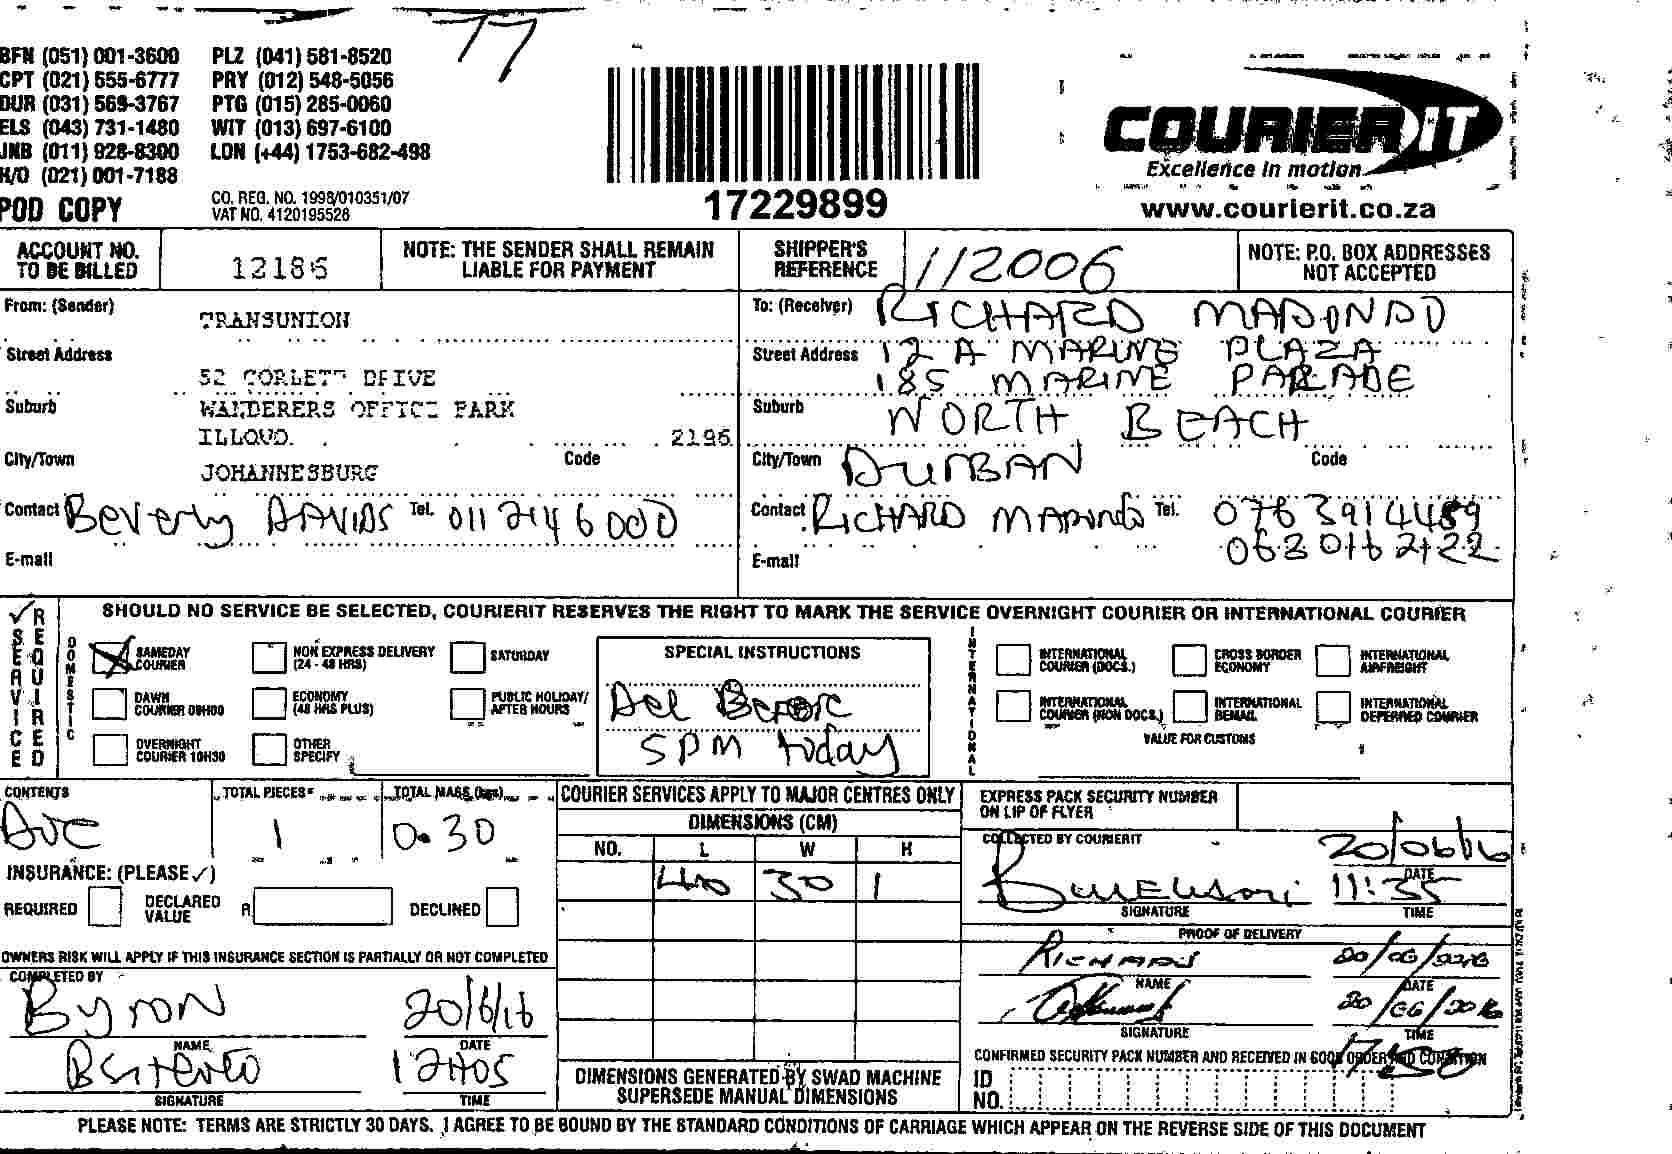 77
BFN (051) 001-3600 PLZ (041) 581-8520
CPT (021) 555-6777 PRY (012) 548-5056
DUR (031) 569-3767 PTG (015) 285-0060
ELS (043) 731-1480 WIT (013) 697-6100
JNB (011) 928-8300 LDN (+44) 1753-682-498
H/O (021) 001-7188
POD COPY
CO. REG. NO. 1998/010351/07
VAT NO. 4120195528
17229899
COURIER IT
Excellence in motion
www.courierit.co.za
ACCOUNT NO. TO BE BILLED
12186
NOTE: THE SENDER SHALL REMAIN LIABLE FOR PAYMENT
SHIPPER'S REFERENCE
112006
NOTE: P.O. BOX ADDRESSES NOT ACCEPTED
From: (Sender) TRANSUNION
Street Address 52 CORLETT DRIVE
Suburb WANDERERS OFFICE PARK
ILLOVO. 2196
City/Town JOHANNESBURG Code
Contact Beverly DAVIDS Tel. 0112146000
E-mail
To: (Receiver) RICHARD MAPONDO
Street Address 12 A MARINE PLAZA
185 MARINE PARADE
Suburb NORTH BEACH
City/Town DURBAN Code
Contact RICHARD Tel. 0763914489
0630162122
E-mail
✓ SERVICE REQUIRED
SHOULD NO SERVICE BE SELECTED, COURIERIT RESERVES THE RIGHT TO MARK THE SERVICE OVERNIGHT COURIER OR INTERNATIONAL COURIER
DOMESTIC
SAMEDAY COURIER
NON EXPRESS DELIVERY (24 - 48 HRS)
SATURDAY
DAWN COURIER 09H00
ECONOMY (48 HRS PLUS)
PUBLIC HOLIDAY/ AFTER HOURS
OVERNIGHT COURIER 10H30
OTHER SPECIFY
SPECIAL INSTRUCTIONS
Del Before
5PM today
INTERNATIONAL
INTERNATIONAL COURIER (DOCS.)
CROSS BORDER ECONOMY
INTERNATIONAL AIRFREIGHT
INTERNATIONAL COURIER (NON DOCS.)
INTERNATIONAL BEMAIL
INTERNATIONAL DEFERRED COURIER
VALUE FOR CUSTOMS
CONTENTS
TOTAL PIECES
1
TOTAL MASS (kgs)
0.30
INSURANCE: (PLEASE ✓)
REQUIRED DECLARED VALUE R DECLINED
OWNERS RISK WILL APPLY IF THIS INSURANCE SECTION IS PARTIALLY OR NOT COMPLETED
COMPLETED BY
Byron 20/6/16
NAME DATE
12H05
SIGNATURE TIME
COURIER SERVICES APPLY TO MAJOR CENTRES ONLY
DIMENSIONS (CM)
NO. L W H
40 30 1
DIMENSIONS GENERATED BY SWAD MACHINE
SUPERSEDE MANUAL DIMENSIONS
EXPRESS PACK SECURITY NUMBER
ON LIP OF FLYER
COLLECTED BY COURIERIT
20/06/16
DATE
11:35
SIGNATURE TIME
PROOF OF DELIVERY
RICHARD 20/06/2016
NAME DATE
20/06/2016
SIGNATURE TIME
17:50
CONFIRMED SECURITY PACK NUMBER AND RECEIVED IN GOOD ORDER AND CONDITION
ID NO.
PLEASE NOTE: TERMS ARE STRICTLY 30 DAYS. I AGREE TO BE BOUND BY THE STANDARD CONDITIONS OF CARRIAGE WHICH APPEAR ON THE REVERSE SIDE OF THIS DOCUMENT